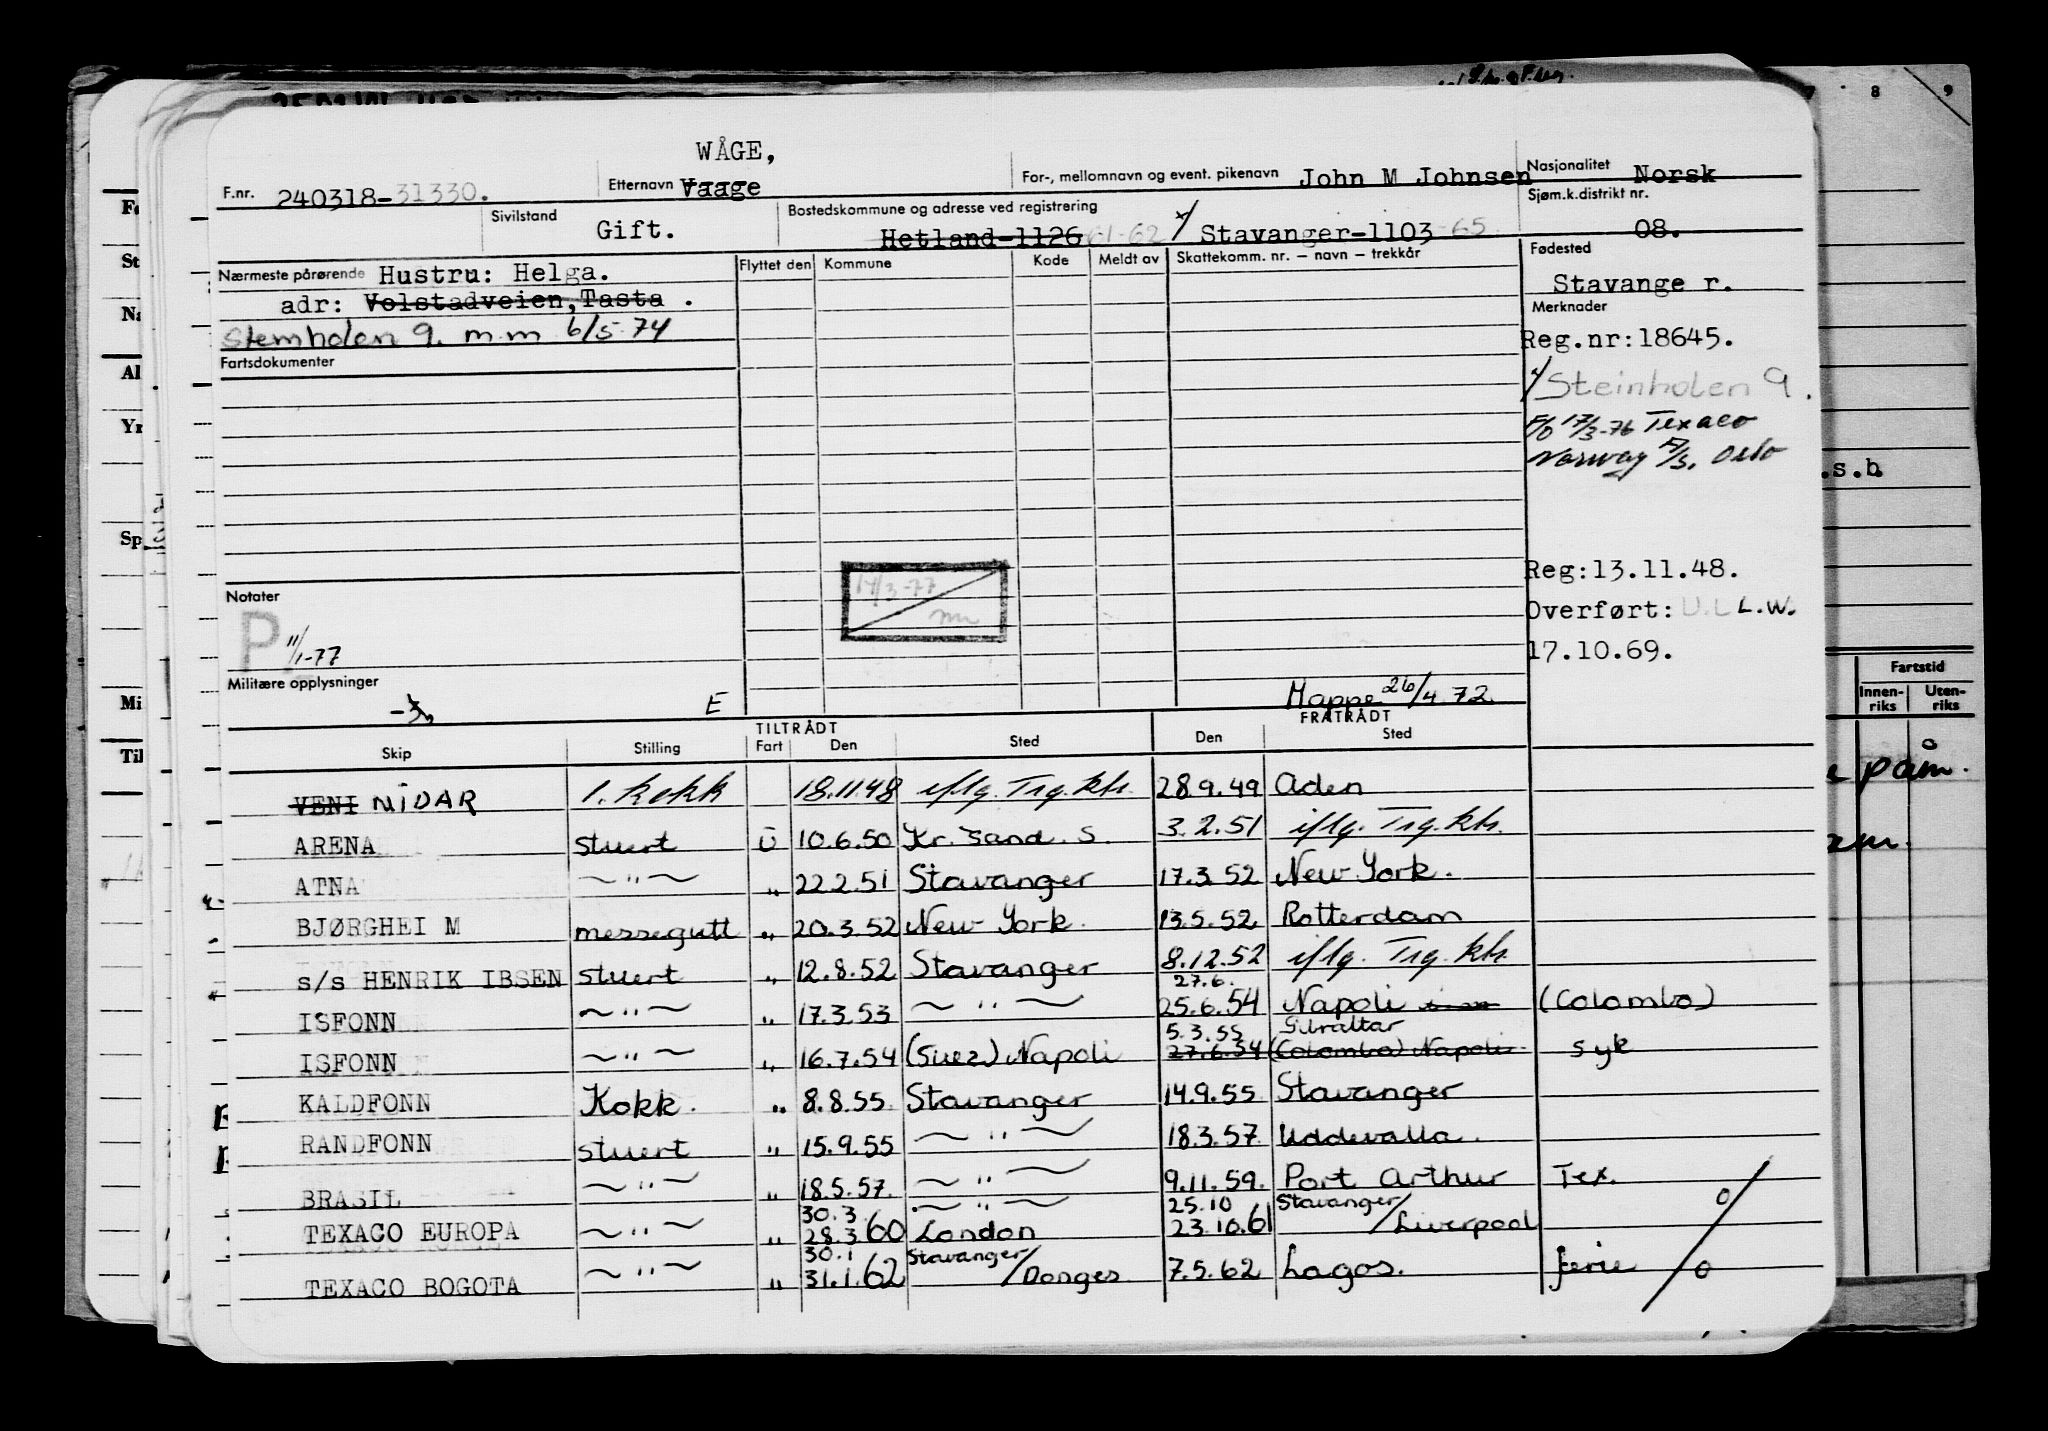 WÅGE,
F.nr. 240318-31330. Etternavn Vaage For-, mellomnavn og event. pikenavn John M Johnsen Nasjonalitet Norsk
Sivilstand Gift. Bostedskommune og adresse ved registrering Hetland-1126 61-62 x/ Stavanger-1103-65 Sjøm.k.distrikt nr. 08.
Nærmeste pårørende Hustru: Helga. Flyttet den Kommune Kode Meldt av Skattekomm. nr. – navn – trekkår Fødested
adr: Volstadveien, Tasta . Stavange r.
Steinholen 9. m.m 6/5-74 Merknader
Fartsdokumenter Reg.nr:18645.
x/Steinholen 9.
F/O 17/3-76 Texaco
Norway A/S. Oslo
.s.b
Reg:13.11.48.
Notater 14/3-77 Overført: L.W.
P 11/1-77 17.10.69.
Militære opplysninger E Mappe 26/4.72
TILTRÅDT FRATRÅDT
Skip Stilling Fart Den Sted Den Sted
VENI NIDAR 1. kokk 18.11.48 iflg. Trg.kts. 28.9.49 Aden
ARENA stuert U 10.6.50 Kr.sand. S. 3.2.51 iflg. Trg.kts.
ATNA ~ " ~ " 22.2.51 Stavanger 17.3.52 New York.
BJØRGHEI M messegutt " 20.3.52 New York. 13.5.52 Rotterdam
s/s HENRIK IBSEN stuert " 12.8.52 Stavanger 8.12.52 iflg. Trg.kts.
27.6.
ISFONN ~ " ~ " 17.3.53 ~ " ~ 25.6.54 Napoli (Colombo)
5.3.55 Gibraltar
ISFONN ~ " ~ " 16.7.54 (Suez) Napoli 27.6.54 (Colombo) Napoli syk
KALDFONN Kokk. " 8.8.55 Stavanger 14.9.55 Stavanger
RANDFONN stuert " 15.9.55 ~ " ~ 18.3.57 Uddevalla.
BRASIL ~ " ~ " 18.5.57. ~ " ~ 9.11.59. Port Arthur Tex.
30.3. ~ " ~ 25.10 Stavanger/ 0
TEXACO EUROPA ~ " ~ " 28.3.60 London 23.10.61 Liverpool
30.1 Stavanger/
TEXACO BOGOTA ~ " ~ " 31.1.62 Donges 7.5.62 Lagos. ferie 0
8 9
Fartstid
Innen-riks Uten-riks